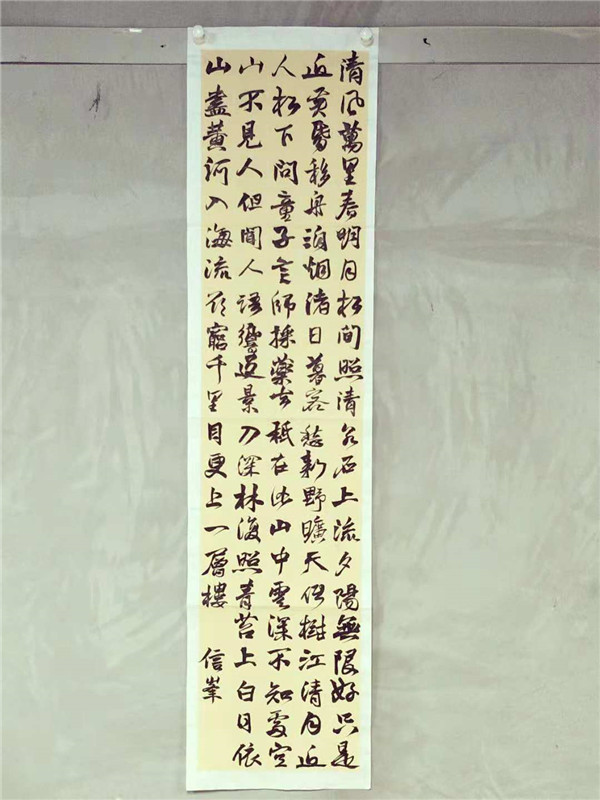 清风萬里春明月松间照清泉石上流夕陽無限好只是
近黄昏移舟泊烟渚日暮客愁新野曠天低樹江清月近
人松下問童子言師採藥去祗在此山中雲深不知處空
山不見人但聞人語響返景入深林復照青苔上白日依
山盡黄河入海流欲窮千里目更上一層樓 信峯